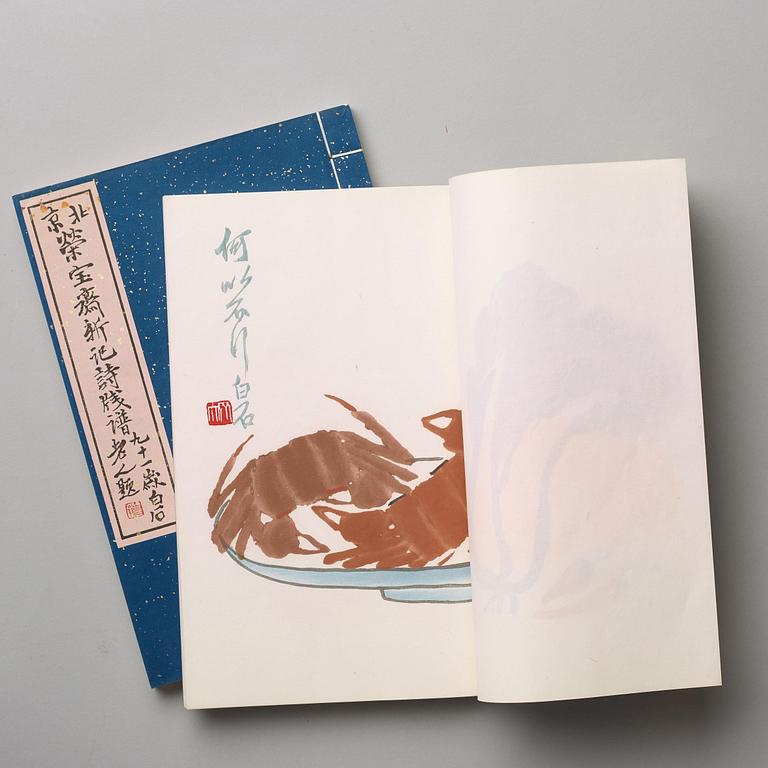 北京
榮宝齋新记詩牋谱
九十一歲白石
老人题
何以不行
白石